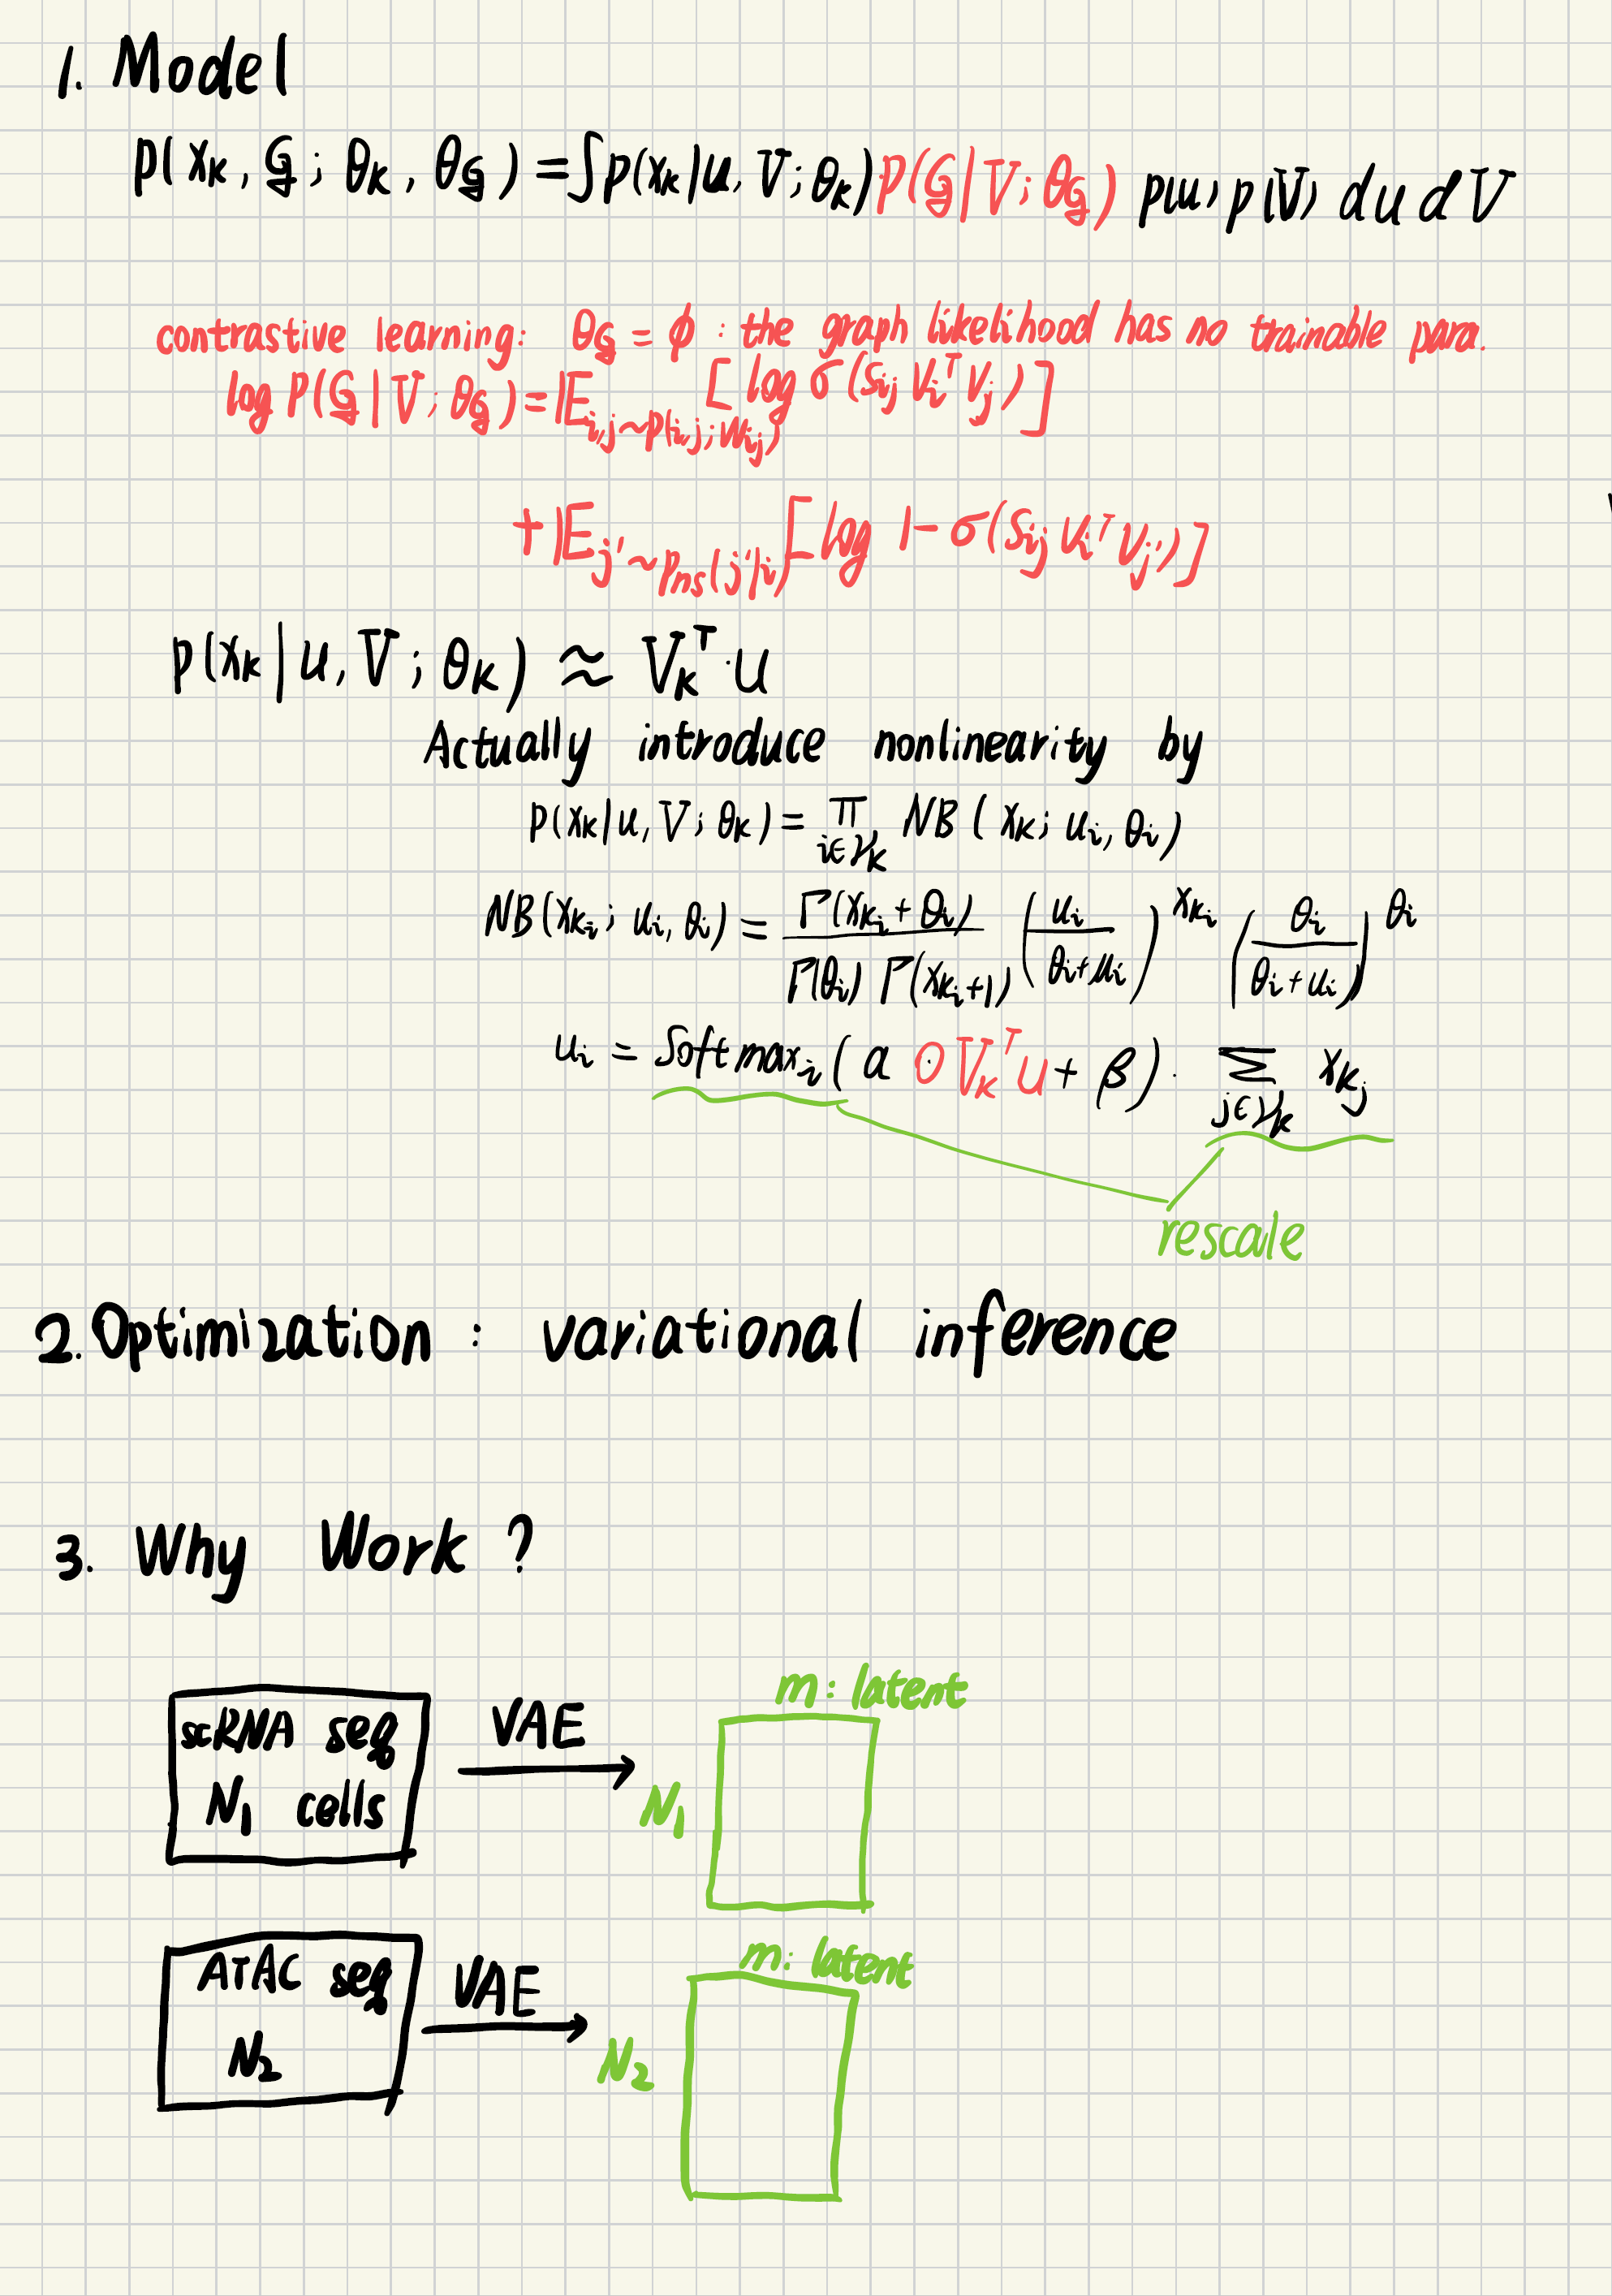 1. Model
p(x_k, G; θ_k, θ_G) = ∫p(x_k|u, V; θ_k) p(G|V; θ_G) p(u) p(V) du dV
contrastive learning: θ_G = ϕ : the graph likelihood has no trainable para.
log P(G|V; θ_G) = E_{i,j~p(i,j; w_ij)} [log σ(s_ij v_i^T v_j)]
+ E_{j'~p_ns(j'|i)} [log 1-σ(s_ij v_i^T v_j')]
p(x_k|u, V; θ_k) ≈ V_k^T·u
Actually introduce nonlinearity by
p(x_k|u, V; θ_k) = Π_{i∈𝒱_k} NB(x_k; u_i, θ_i)
NB(x_{k_i}; u_i, θ_i) = Γ(x_{k_i}+θ_i) / Γ(θ_i) Γ(x_{k_i}+1) (u_i / θ_i+u_i)^{x_{k_i}} (θ_i / θ_i+u_i)^{θ_i}
u_i = Softmax_i(α ⊙ V_k^T u + β) · Σ_{j∈𝒱_k} x_{k_j}
rescale
2. Optimization : variational inference
3. Why Work ?
m: latent
scRNA seq
VAE
N_1 cells
N_1
m: latent
ATAC seq
VAE
N_2
N_2